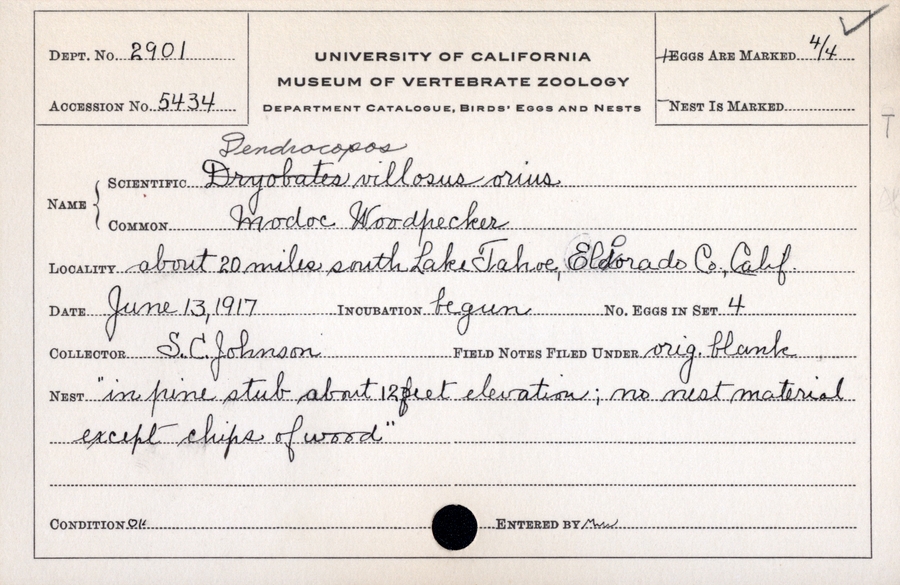 DEPT. NO. 2901
ACCESSION NO. 5434
UNIVERSITY OF CALIFORNIA
MUSEUM OF VERTEBRATE ZOOLOGY
DEPARTMENT CATALOGUE, BIRDS' EGGS AND NESTS
EGGS ARE MARKED 4/4
NEST IS MARKED
T
Dendrocopos
NAME
SCIENTIFIC Dryobates villosus orius
COMMON Modoc Woodpecker
LOCALITY about 20 miles south Lake Tahoe, Eldorado Co., Calif.
DATE June 13, 1917 INCUBATION begun NO. EGGS IN SET 4
COLLECTOR S. C. Johnson FIELD NOTES FILED UNDER orig. blank
NEST "in pine stub about 12 feet elevation; no nest material
except chips of wood"
CONDITION OK ENTERED BY